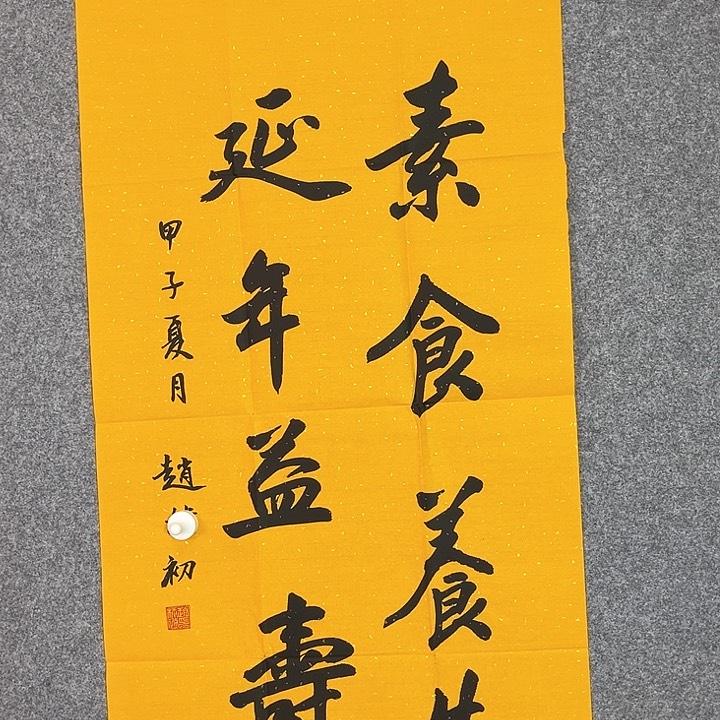 素食養生
延年益壽
甲子夏月 趙 初